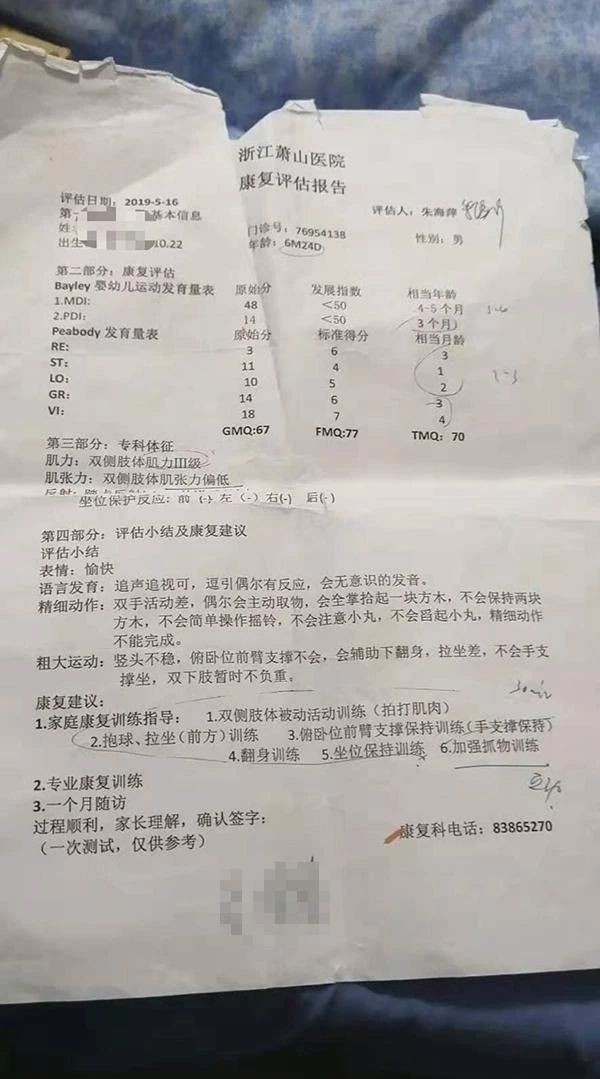 浙江萧山医院
康复评估报告
评估日期：2019-5-16 评估人：朱海萍
第 基本信息
姓 门诊号：76954138 性别：男
出生 10.22 年龄：6M24D
第二部分：康复评估
Bayley 婴幼儿运动发育量表 原始分 发展指数 相当年龄
1.MDI： 48 ＜50 4-5个月
2.PDI： 14 ＜50 3个月
Peabody 发育量表 原始分 标准得分 相当月龄
RE： 3 6 3
ST： 11 4 1
LO： 10 5 2
GR： 14 6 3
VI： 18 7 4
GMQ:67 FMQ:77 TMQ：70
第三部分：专科体征
肌力：双侧肢体肌力Ⅲ级
肌张力：双侧肢体肌张力偏低
坐位保护反应：前（-）左（-）右(-) 后(-)
第四部分：评估小结及康复建议
评估小结
表情：愉快
语言发育：追声追视可，逗引偶尔有反应，会无意识的发音。
精细动作：双手活动差，偶尔会主动取物，会全掌拾起一块方木，不会保持两块
方木，不会简单操作摇铃，不会注意小丸，不会舀起小丸，精细动作
不能完成。
粗大运动：竖头不稳，俯卧位前臂支撑不会，会辅助下翻身，拉坐差，不会手支
撑坐，双下肢暂时不负重。
康复建议：
1.家庭康复训练指导： 1.双侧肢体被动活动训练（拍打肌肉）
2.抱球、拉坐（前方）训练 3.俯卧位前臂支撑保持训练（手支撑保持）
4.翻身训练 5.坐位保持训练 6.加强抓物训练
2.专业康复训练
3.一个月随访
过程顺利，家长理解，确认签字：
（一次测试，仅供参考） 康复科电话：83865270